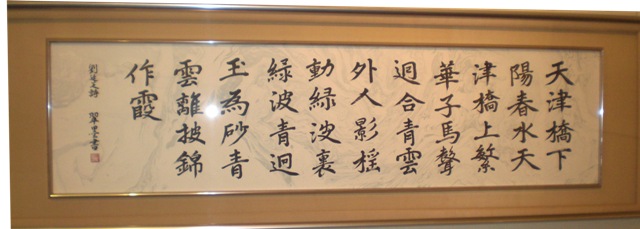 天津橋下
陽春水天
津橋上繁
華子馬聲
迴合青雲
外人影揺
動緑波裏
緑波青迥
玉為砂青
雲離披錦
作霞
劉廷芝詩 翠墨書